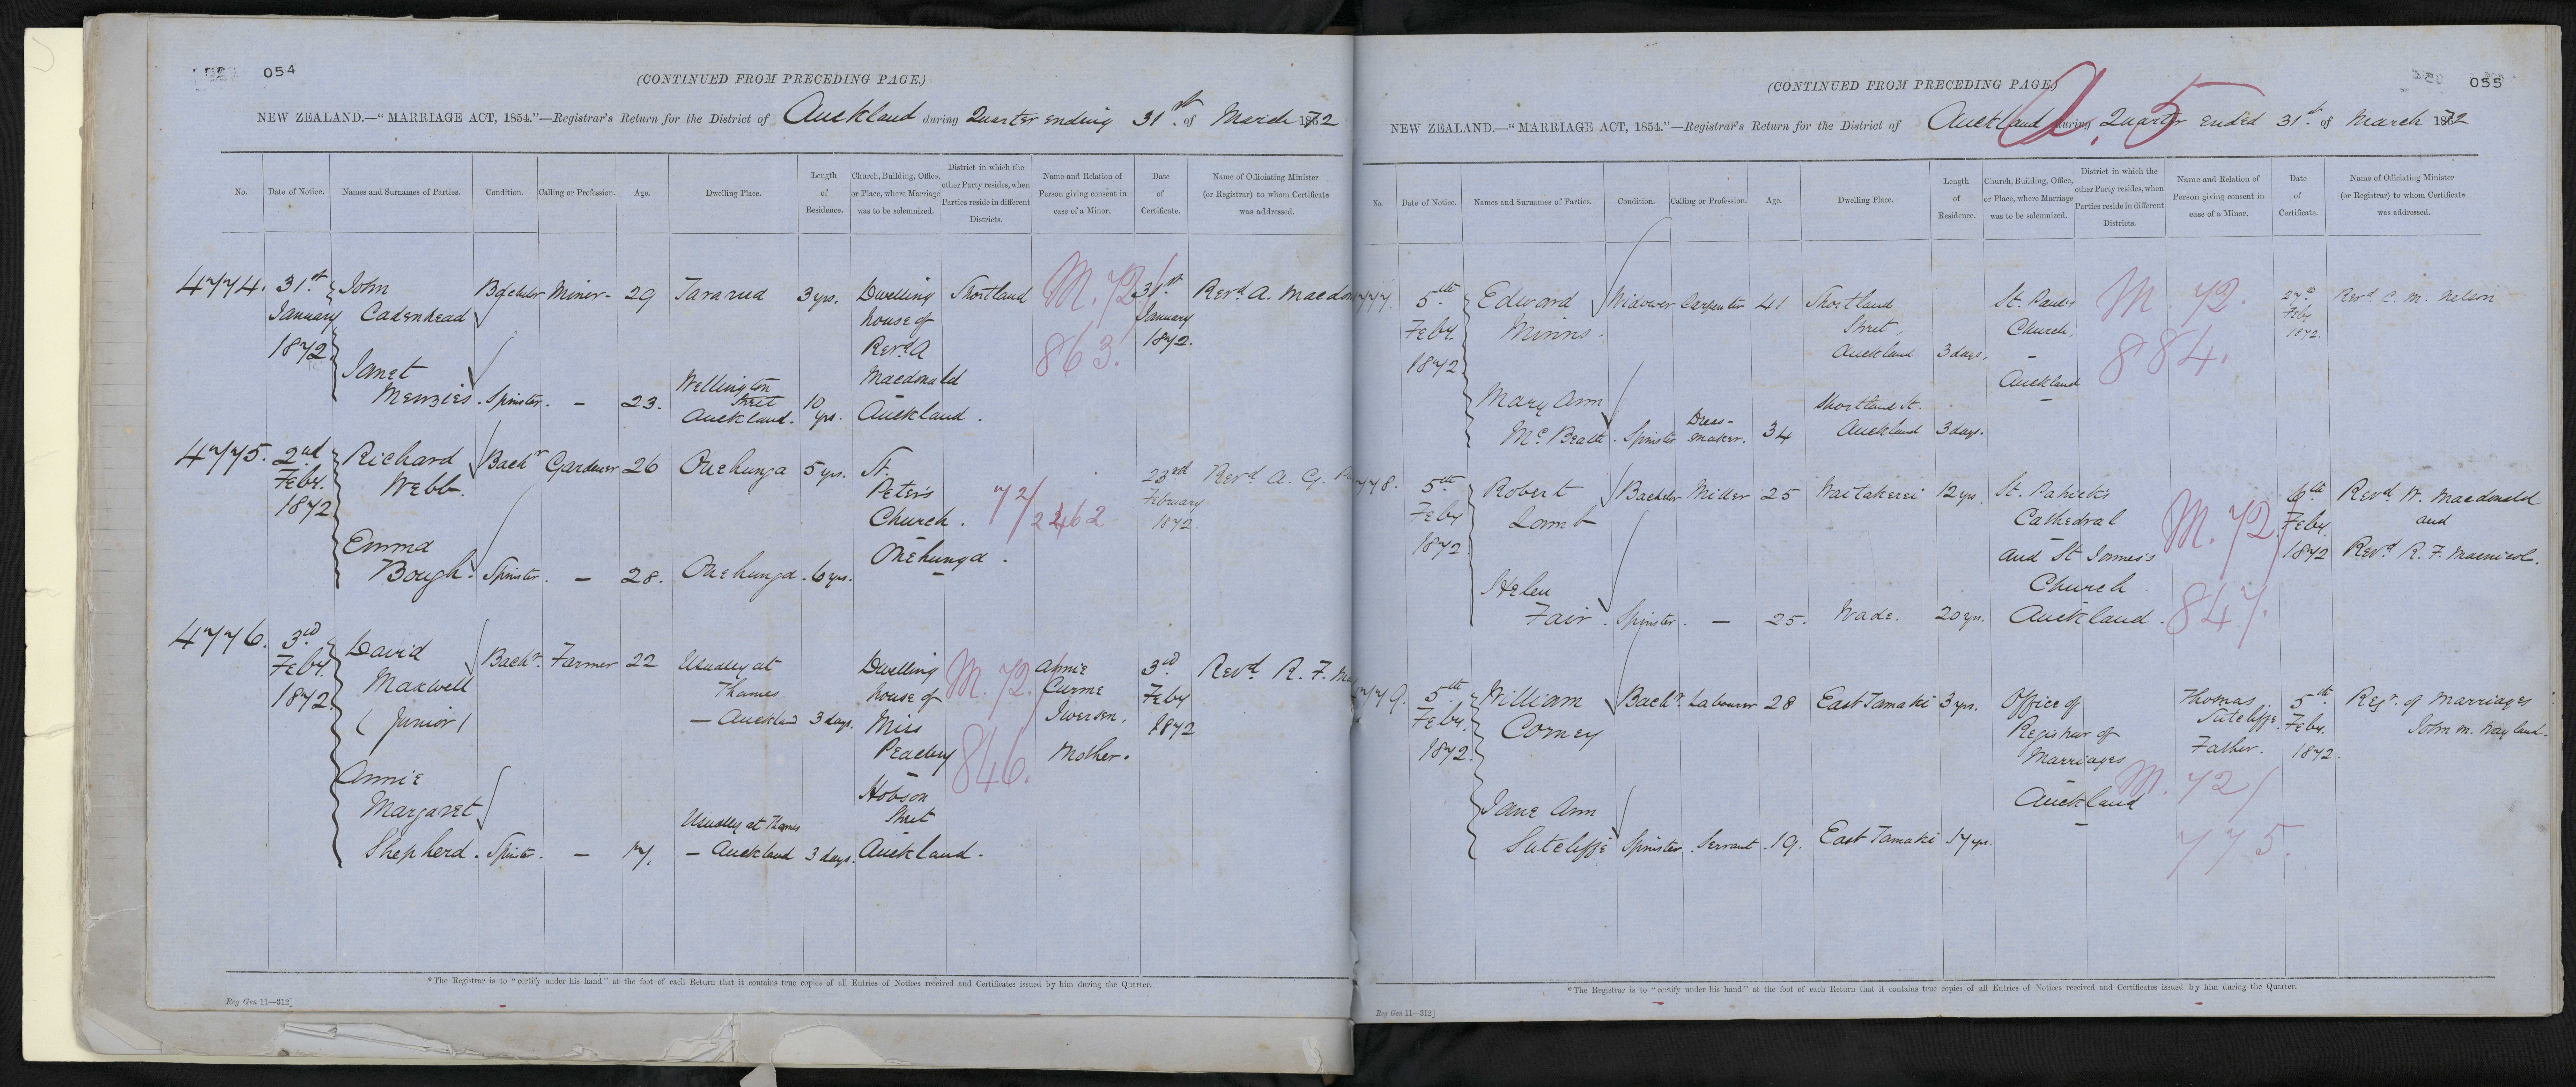 054
(CONTINUED FROM PRECEDING PAGE.)
NEW ZEALAND.—"MARRIAGE ACT, 1854."—Registrar's Return for the District of Auckland during Quarter ending 31st of March 1872
No. Date of Notice. Names and Surnames of Parties. Condition. Calling or Profession. Age. Dwelling Place. Length of Residence. Church, Building, Office, or Place, where Marriage was to be solemnized. District in which the other Party resides, when Parties reside in different Districts. Name and Relation of Person giving consent in case of a Minor. Date of Certificate. Name of Officiating Minister (or Registrar) to whom Certificate was addressed.
4774. 31st January 1872 John Cadenhead Bachelor Miner 29 Tararua 3 yrs. Dwelling house of Revd. A Macdonald Auckland. Shortland M. 72/ 863. 31st January 1872. Revd. A. Macdon
Janet Menzies. Spinster. — 23. Wellington Street Auckland. 10 yrs.
4775. 2nd Feby. 1872 Richard Webb. Bachr Gardener 26 Onehunga 5 yrs. St. Peter's Church. Onehunga. 72/2462 23rd February 1872. Revd A. G.
Emma Bough. Spinster. — 28. Onehunga. 6 yrs.
4776. 3rd Feby. 1872 David Maxwell (Junior) Bachr. Farmer 22 Usually at Thames — Auckland 3 days. Dwelling house of Miss Peacey Hobson Street Auckland. M. 72/ 846. Annie Curme Iversen. Mother. 3rd Feby 1872 Revd. R. F. Ma
Annie Margaret Shepherd. Spinster. — 17. Usually at Thames — Auckland 3 days.
*The Registrar is to "certify under his hand" at the foot of each Return that it contains true copies of all Entries of Notices received and Certificates issued by him during the Quarter.
Reg Gen 11—312]
055
(CONTINUED FROM PRECEDING PAGE)
NEW ZEALAND.—"MARRIAGE ACT, 1854."—Registrar's Return for the District of Auckland during Quarter ended 31st. of March 1872
No. Date of Notice. Names and Surnames of Parties. Condition. Calling or Profession. Age. Dwelling Place. Length of Residence. Church, Building, Office, or Place, where Marriage was to be solemnized. District in which the other Party resides, when Parties reside in different Districts. Name and Relation of Person giving consent in case of a Minor. Date of Certificate. Name of Officiating Minister (or Registrar) to whom Certificate was addressed.
777. 5th Feby. 1872 Edward Minns. Widower Carpenter 41 Shortland Street, Auckland 3 days. St. Paul's Church, Auckland M. 72. 884. Feby 1872. Revd C. M. Nelson
Mary Ann McBeath. Spinster Dress-maker. 34 Shortland St. Auckland 3 days.
778. 5th Feby 1872 Robert Lamb Bachelor Miller 25 Waitakerei 12 yrs. St. Patrick's Cathedral and St James's Church Auckland. M. 72/ 847. 6th Feby. 1872 Revd. W. Macdonald and Revd. R. F. Macnicol.
Helen Fair. Spinster. — 25. Wade. 20 yrs.
779. 5th Feby. 1872. William Corney Bachr. Labourer 28 East Tamaki 3 yrs. Office of Registrar of Marriages Auckland M. 72/ 775. Thomas Sutcliffe. Father. 5th Feby. 1872. Regr. of Marriages John M. Wayland.
Jane Ann Sutcliffe Spinster. Servant. 19. East Tamaki 17 yrs.
*The Registrar is to "certify under his hand" at the foot of each Return that it contains true copies of all Entries of Notices received and Certificates issued by him during the Quarter.
Reg Gen 11—312]